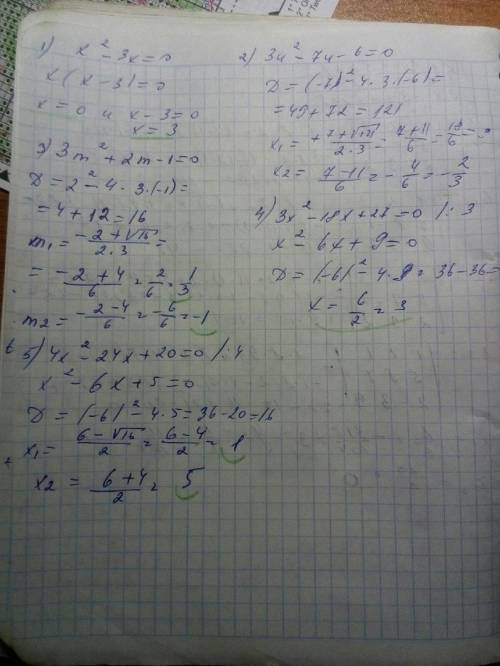 1) x² - 3x = 0
x(x - 3) = 0
x = 0 и x - 3 = 0
x = 3
2) 3u² - 7u - 6 = 0
D = (-7)² - 4·3·(-6) =
= 49 + 72 = 121
x₁ = +7+√121/2·3 = 7+11/6 = 18/6 = 3
x₂ = 7-11/6 = -4/6 = -2/3
3) 3m² + 2m - 1 = 0
D = 2² - 4·3·(-1) =
= 4 + 12 = 16
m₁ = -2+√16/2·3 =
= -2+4/6 = 2/6 = 1/3
m₂ = -2-4/6 = -6/6 = -1
4) 3x² - 18x + 27 = 0 /: 3
x² - 6x + 9 = 0
D = (-6)² - 4·9 = 36 - 36 =
x = 6/2 = 3
5) 4x² - 24x + 20 = 0 /: 4
x² - 6x + 5 = 0
D = (-6)² - 4·5 = 36 - 20 = 16
x₁ = 6-√16/2 = 6-4/2 = 1
x₂ = 6+4/2 = 5